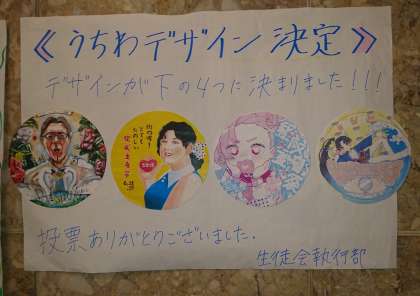 《うちわデザイン決定》
デザインが下の4つに決まりました!!!
投票ありがとうございました.
生徒会執行部